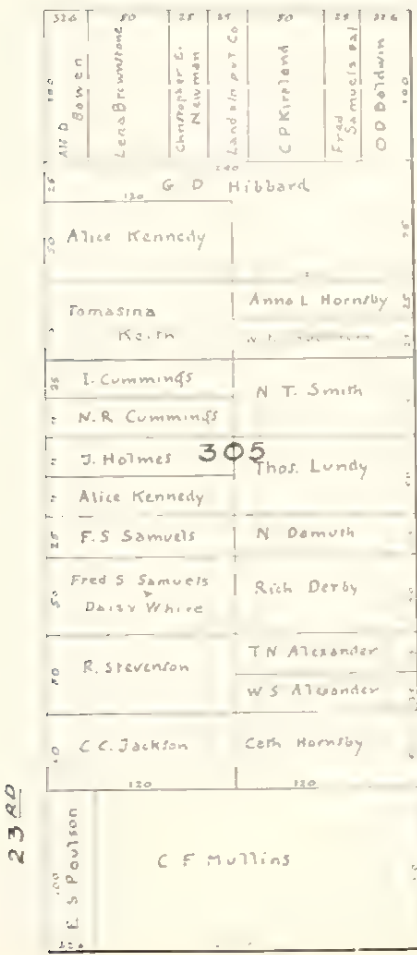 32.6 50 25 25 50 25 32.6
100
Bowen
Lena Brownstone
Christopher E.
Newman
C P Kirpland
Fred
Samuels
O D Baldwin
100
240
25
G D Hibbard
120
50
Alice Kennedy
Tomasina
Keith
Anna L Hornsby
25
25
I. Cummings
N T. Smith
N. R. Cummings
J. Holmes
305
Thos. Lundy
Alice Kennedy
25
F. S Samuels
N Domuth
50
Fred S Samuels
Daisy White
Rich Derby
50
R. Stevenson
T N Alexander
W S Alexander
C C. Jackson
Cath Hornsby
120
120
23 RD
E S Poulson
C F Mullins